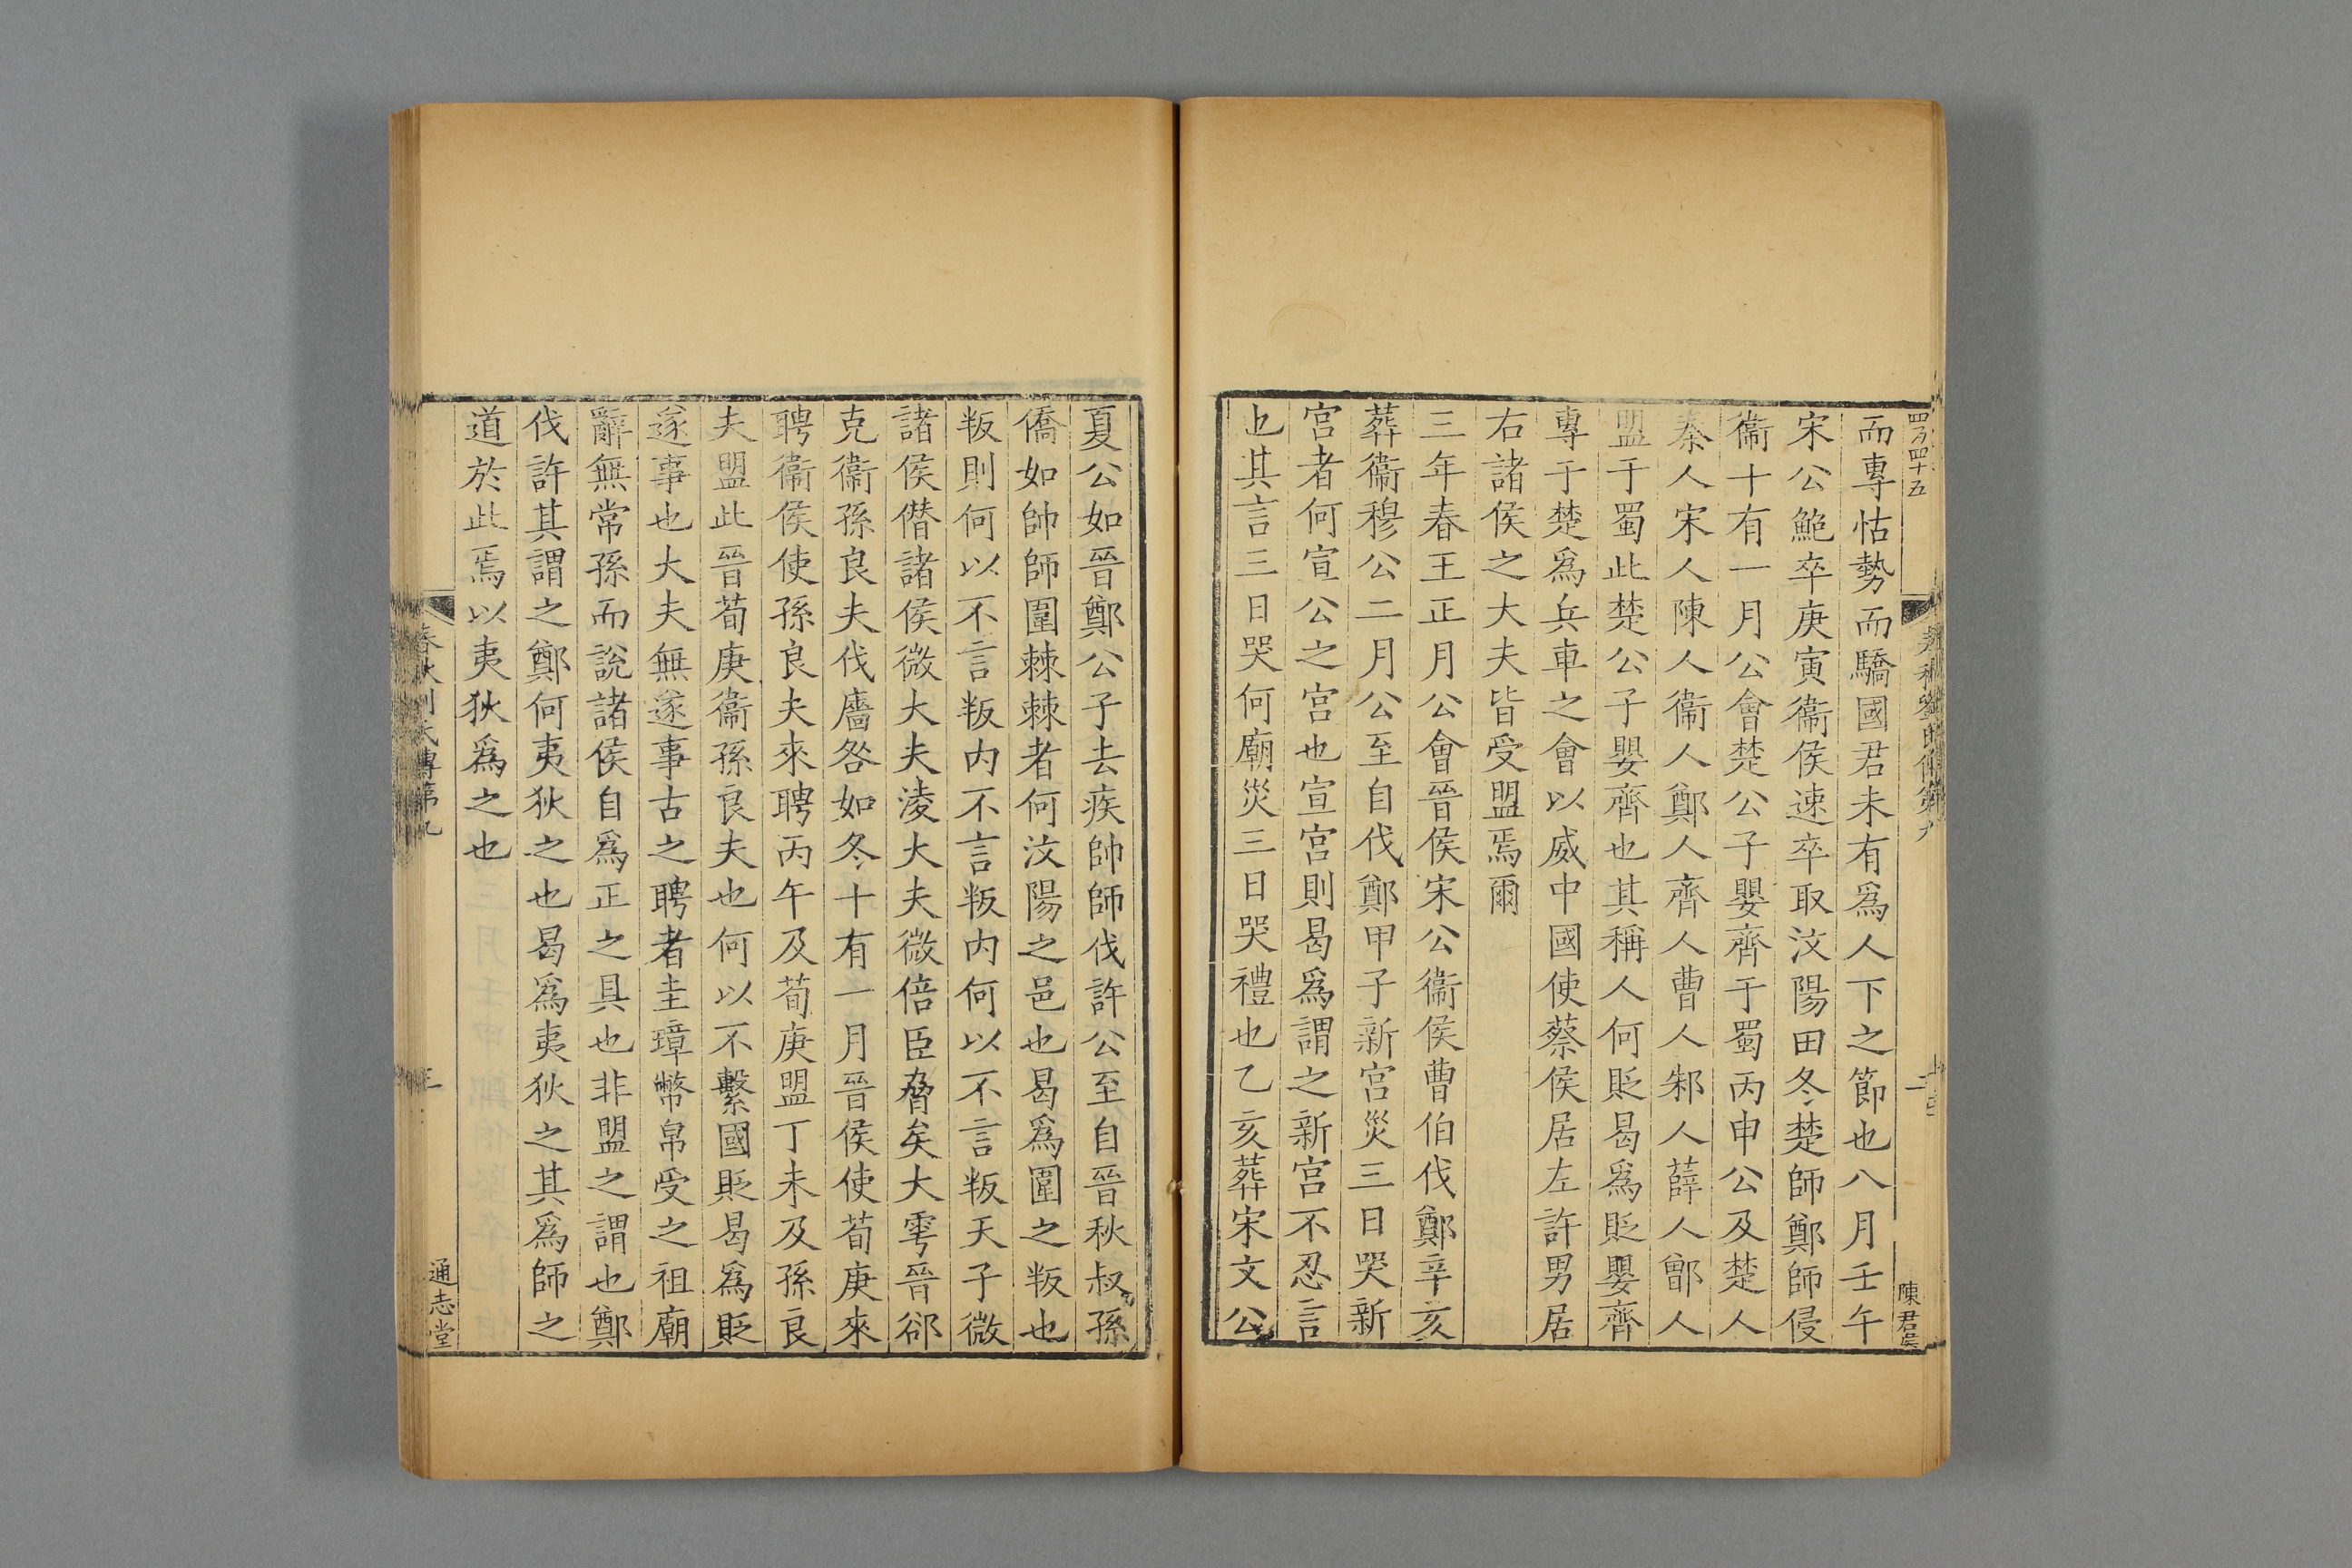 四百四十五
陳君侯
而專怙勢而驕國君未有爲人下之節也八月壬午
宋公鮑卒庚寅衞侯速卒取汶陽田冬楚師鄭師侵
衞十有一月公會楚公子嬰齊于蜀丙申公及楚人
秦人宋人陳人衞人鄭人齊人曹人邾人薛人鄫人
盟于蜀此楚公子嬰齊也其稱人何貶曷爲貶嬰齊
專于楚爲兵車之會以威中國使蔡侯居左許男居
右諸侯之大夫皆受盟焉爾
三年春王正月公會晉侯宋公衞侯曹伯伐鄭辛亥
葬衞穆公二月公至自伐鄭甲子新宮災三日哭新
宮者何宣公之宮也宣宮則曷爲謂之新宮不忍言
也其言三日哭何廟災三日哭禮也乙亥葬宋文公
夏公如晉鄭公子去疾帥師伐許公至自晉秋叔孫
僑如帥師圍棘棘者何汶陽之邑也曷爲圍之叛也
叛則何以不言叛内不言叛内何以不言叛天子微
諸侯僭諸侯微大夫淩大夫微倍臣脅矣大雩晉郤
克衞孫良夫伐廧咎如冬十有一月晉侯使荀庚來
聘衞侯使孫良夫來聘丙午及荀庚盟丁未及孫良
夫盟此晉荀庚衞孫良夫也何以不繫國貶曷爲貶
遂事也大夫無遂事古之聘者圭璋幣帛受之祖廟
辭無常孫而說諸侯自爲正之具也非盟之謂也鄭
伐許其謂之鄭何夷狄之也曷爲夷狄之其爲師之
道於此焉以夷狄爲之也
春秋劉氏傳第九
通志堂